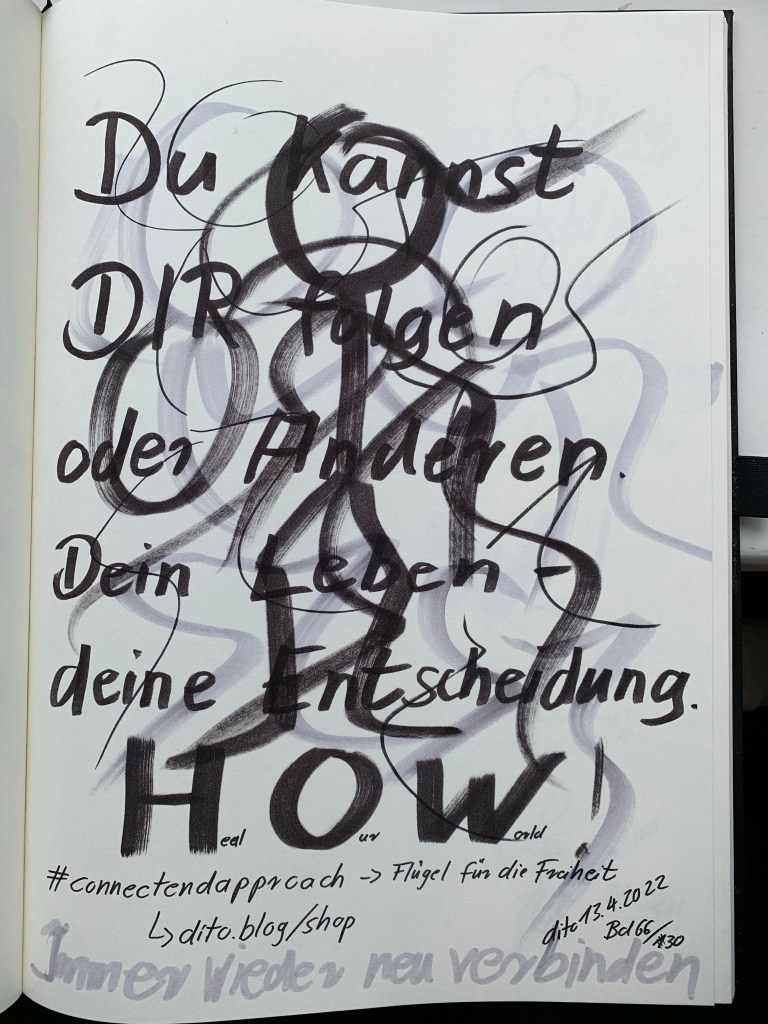 Du Kannst
DIR folgen
oder Anderen.
Dein Leben -
deine Entscheidung.
HOW!
eal ur orld
#connectendapproach -> Flügel für die Freiheit
↳ dito.blog/shop
dito 13.4.2022
Bd66/*30
Immer Wieder neu verbinden